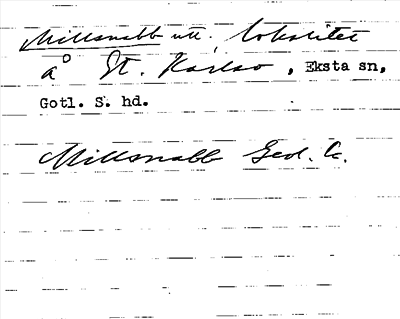 Millsnabb utt. lokalitet
å St. Karlsö, Eksta sn,
Gotl. S. hd.
Millsnabb Geol. k.